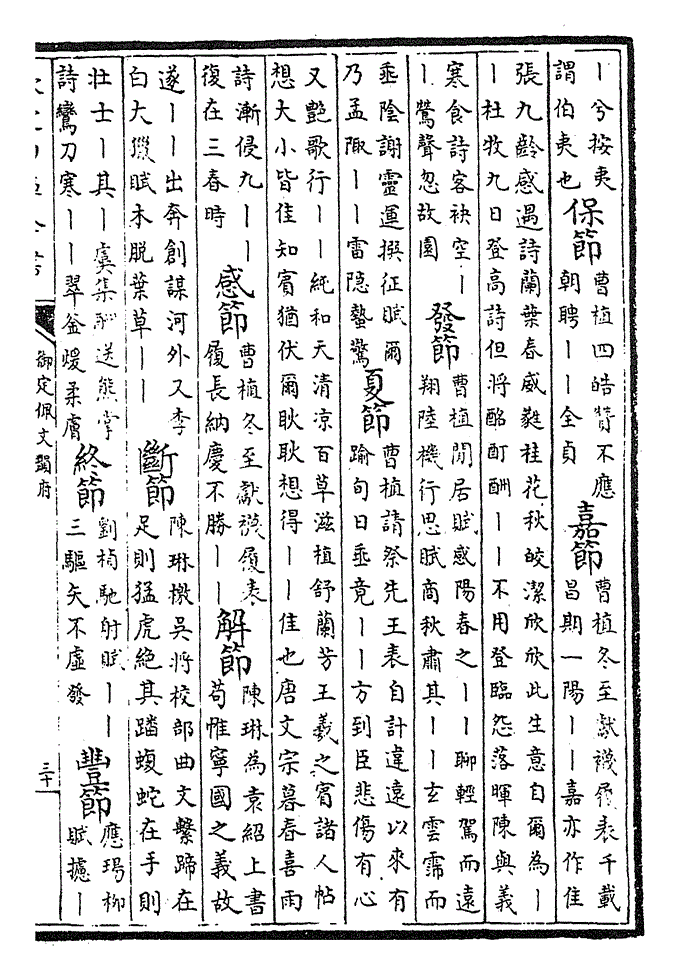 丨兮按夷
謂伯夷也
保節
曹植四皓贊不應
朝聘丨丨全貞
嘉節
曹植冬至獻襪履表千載
昌期一陽丨丨嘉亦作佳
張九齡感遇詩蘭葉春葳蕤桂花秋皎潔欣欣此生意自爾為丨
丨杜牧九日登高詩但將酩酊酬丨丨不用登臨怨落暉陳與義
寒食詩客袂空丨
丨鶯聲忽故園
發節
曹植閒居賦感陽春之丨丨聊輕駕而遠
翔陸機行思賦商秋肅其丨丨玄雲霈而
垂陰謝靈運撰征賦爾
乃孟陬丨丨雷隱蟄驚
夏節
曹植請祭先王表自計違遠以來有
踰旬日垂竟丨丨方到臣悲傷有心
又艷歌行丨丨純和天清凉百草滋植舒蘭芳王羲之賓諸人帖
想大小皆佳知賓猶伏爾耿耿想得丨丨佳也唐文宗暮春喜雨
詩漸侵九丨丨
復在三春時
感節
曹植冬至獻襪履表
履長納慶不勝丨丨
解節
陳琳為袁紹上書
苟惟寧國之義故
遂丨丨出奔創謀河外又李
白大獵賦木脱葉草丨丨
斷節
陳琳檄吳將校部曲文繫蹄在
足則猛虎絶其蹯蝮蛇在手則
壯士丨其丨虞集酬送熊掌
詩鸞刀寒丨丨翠釜煖柔膚
終節
劉楨馳射賦丨丨
三驅矢不虛發
豐節
應瑒柳
賦攄丨
御定佩文韻府
三十